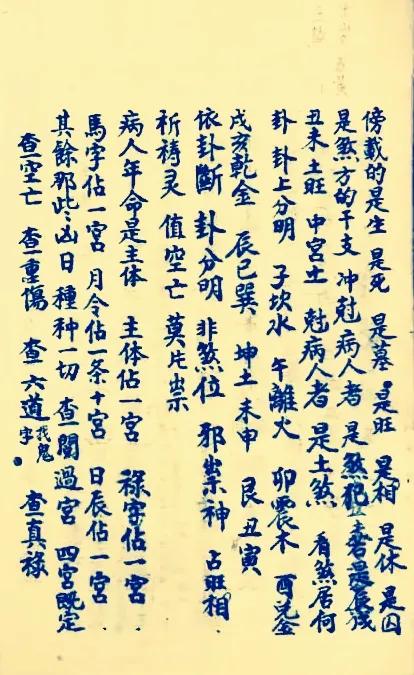 傍載的是生 是死 是墓 是旺 是相 是休 是囚
是煞方的干支 冲尅病人者 是煞犯
丑未土旺 中宮土 尅病人者 是土煞 看煞居何
卦 卦上分明 子坎水 午離火 卯震木 酉兑金
戌亥乾金 辰巳巽 坤土未申 艮丑寅
依卦斷 卦分明 非煞位 邪祟神 占旺相
祈祷灵 值空亡 莫片祟
病人年命是主体 主体佔一宮 禄字佔一宮
馬字佔一宮 月令佔一条十宮 日辰佔一宮
其餘那些凶日種种一切 查閣過宮 四宮既定
查空亡 查重傷 查六道字 找鬼 查真禄